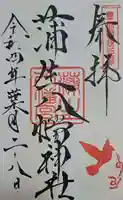 奉拝
蒲生八幡神社
令和四年葉月二十八日